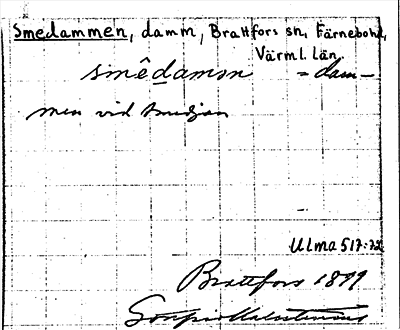 Smedammen, damm, Brattfors sn, Färnebo hd,
Värml. län
smêdamm = dam-
men vid smedjan
Ulma 517:72
Brattfors 1899